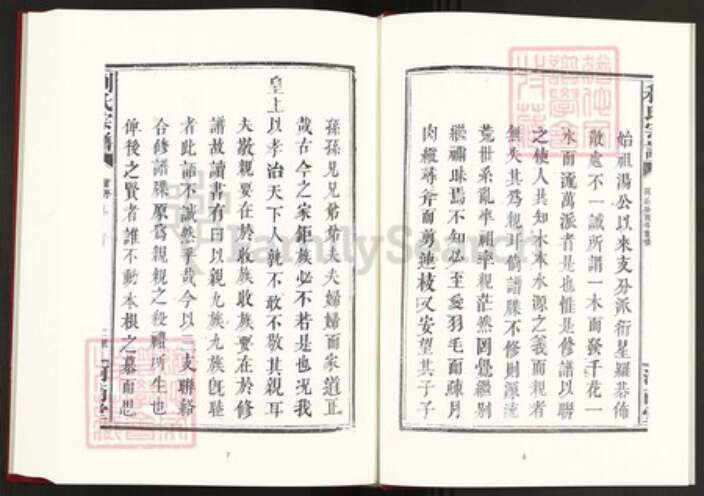 始祖湯公以來支分派衍星羅碁佈
散處不一誠所謂一木而發千花一
水而流萬派者是也惟是修譜以聯
之使人共知木本水源之義而親者
無失其為親耳倘譜牒不修則源流
荒世系亂率祖率親茫然罔覺繼別
繼禰昧焉不知必至愛羽毛而疎月
肉縱尋斧而剪連枝又安望其子子
孫孫兄兄弟弟夫夫婦婦而家道正
哉古今之家鉅族必不若是也况我
皇上以孝治天下人孰不敢不敬其親耳
夫敬親要在於收族收族要在於修
譜故讀書有曰以親九族九族旣睦
者此語不誠然乎哉今以三支聯絡
合修譜牒原為親親之殺禮所生也
俾後之賢者誰不動本根之慕而思
劉氏宗譜
7
6
FamilySearch